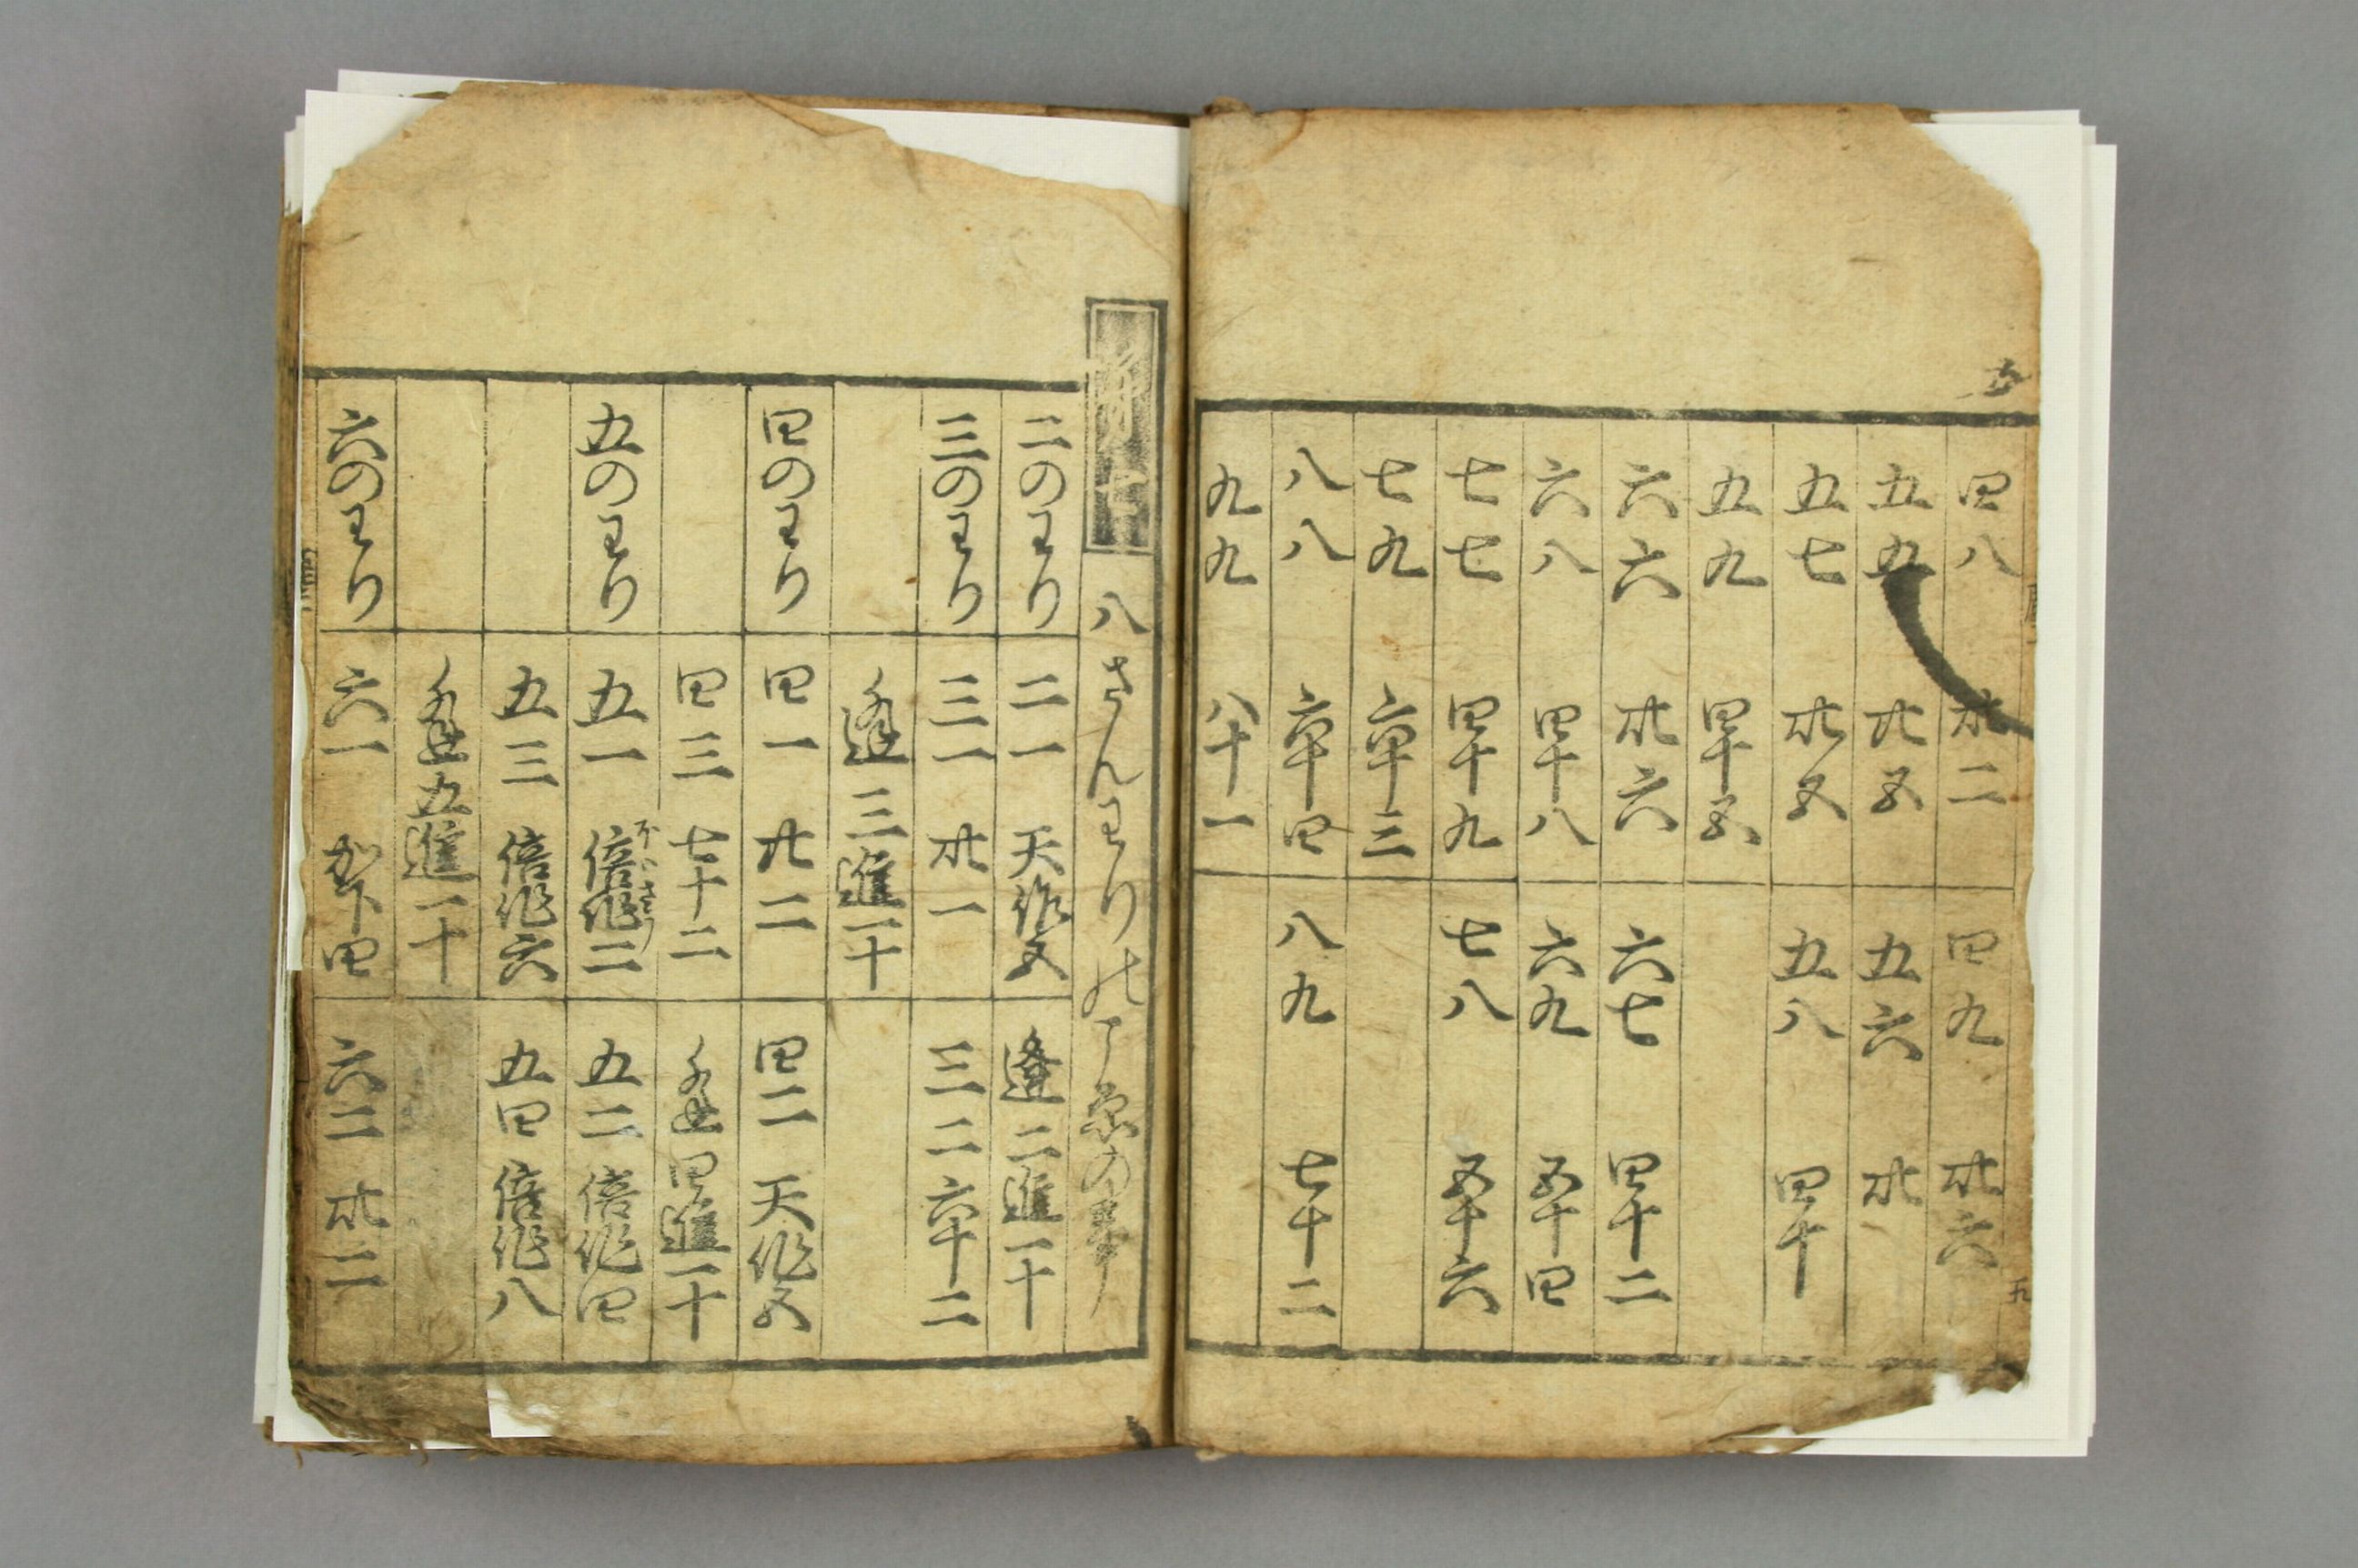 四八 卅二 四九 卅六
五五 廿五 五六 卅
五七 卅五 五八 四十
五九 四十五
六六 卅六 六七 四十二
六八 四十八 六九 五十四
七七 四十九 七八 五十六
七九 六十三
八八 六十四 八九 七十二
九九 八十一
五
八さんわり の事
二のわり 二一 天作五 逢二進一十
三のわり 三一 卅一 三二 六十二
逢三進一十
四のわり 四一 廿二 四二 天作五
四三 七十二 逢四進一十
五のわり 五一 倍作二 五二 倍作四
五三 倍作六 五四 倍作八
逢五進一十
六のわり 六一 加下四 六二 卅二